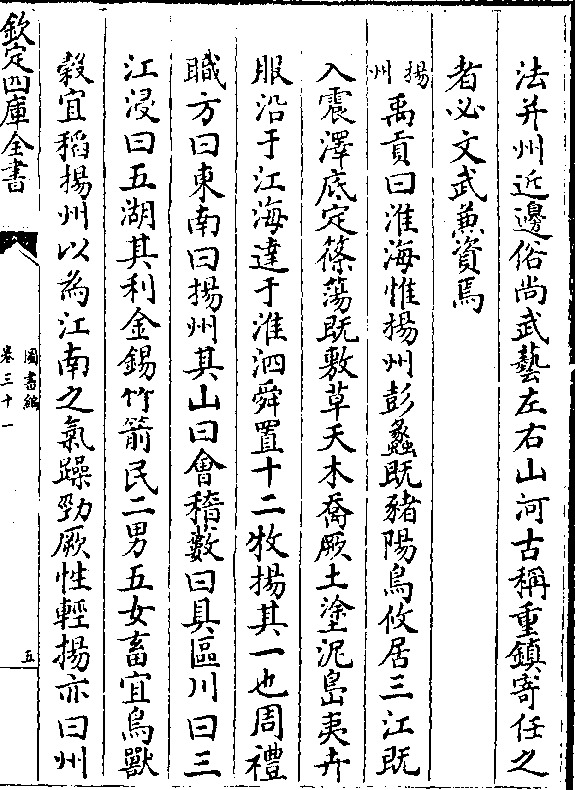 法并州近邊俗尚武藝左右山河古稱重鎮寄任之
者必文武兼資焉
揚州 禹貢曰淮海惟揚州彭蠡既豬陽鳥攸居三江既
入震澤底定篠簜既敷草夭木喬厥土塗泥島夷卉
服沿于江海達于淮泗舜置十二牧揚其一也周禮
職方曰東南曰揚州其山曰會稽藪曰具區川曰三
江浸曰五湖其利金錫竹箭民二男五女畜宜鳥獸
穀宜稻揚州以為江南之氣躁勁厥性輕揚亦曰州
欽定四庫全書
圖書編
卷三十一
五